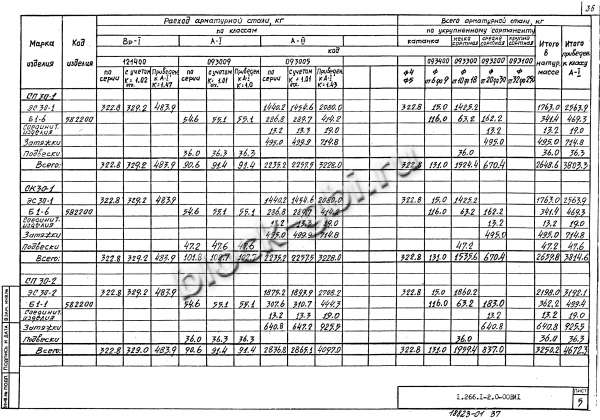 36
Расход арматурной стали, кг
Всего арматурной стали, кг
по классам
по укрупненному сортаменту
Марка изделия
Код изделия
Вр-I
А-I
А-II
катанка
мелкосортная
среднесортная
крупносортная
Итого в натур. массе
Итого приведен. к классу А-I
код
121400
093009
093005
093400 093300 093200 093100
по серии
с учетом К=1.02
Приведен. к А-I К=1.47
по серии
с учетом К=1.01
Приведен. к А-I К=1.0
по серии
с учетом К=1.01
Приведен. к А-I К=1.43
ф4 ф5
СП 30-1
ЭС 30-1 322.8 329.2 483.9 1440.2 1454.6 2080.0 322.8 15.0 1425.2 1763.0 2563.9
Б1-6 582200 54.6 55.1 55.1 286.8 289.7 414.2 116.0 63.2 162.2 341.4 469.3
Соединит. изделия 13.2 13.3 19.0 13.2 13.2 19.0
Затяжки 495.0 499.9 714.8 495.0 495.0 714.8
Подвески 36.0 36.3 36.3 36.0 36.0 36.3
Всего: 322.8 329.2 483.9 90.6 91.4 91.4 2235.2 2257.5 3228.0 322.8 131.0 1524.4 670.4 2648.6 3803.3
СК 30-1
ЭС 30-1 322.8 329.2 483.9 1440.2 1454.6 2080.0 322.8 15.0 1425.2 1763.0 2563.9
Б1-6 582200 54.6 55.1 55.1 286.8 289.7 414.2 116.0 63.2 162.2 341.4 469.3
Соединит. изделия 13.2 13.3 19.0 13.2 13.2 19.0
Затяжки 495.0 499.9 714.8 495.0 495.0 714.8
Подвески 47.2 47.6 47.6 47.2 47.2 47.6
Всего: 322.8 329.2 483.9 101.8 102.7 102.7 2235.2 2257.5 3228.0 322.8 131.0 1535.6 670.4 2659.8 3814.6
СП 30-2
ЭС 30-2 322.8 329.2 483.9 1875.2 1893.9 2708.2 322.8 15.0 1860.2 2198.0 3192.1
Б1-1 582200 54.6 55.1 55.1 307.6 310.7 444.3 116.0 63.2 183.0 362.2 499.4
Соединит. изделия 13.2 13.3 19.0 13.2 13.2 19.0
Затяжки 640.8 647.2 925.5 640.8 640.8 925.5
Подвески 36.0 36.3 36.3 36.0 36.0 36.3
Всего: 322.8 329.0 483.9 90.6 91.4 91.4 2836.8 2865.1 4097.0 322.8 131.0 1959.4 837.0 3250.2 4672.3
block-gbi.ru
1.266.1-2.0-00ВМ1
Лист
5
18823-01 37